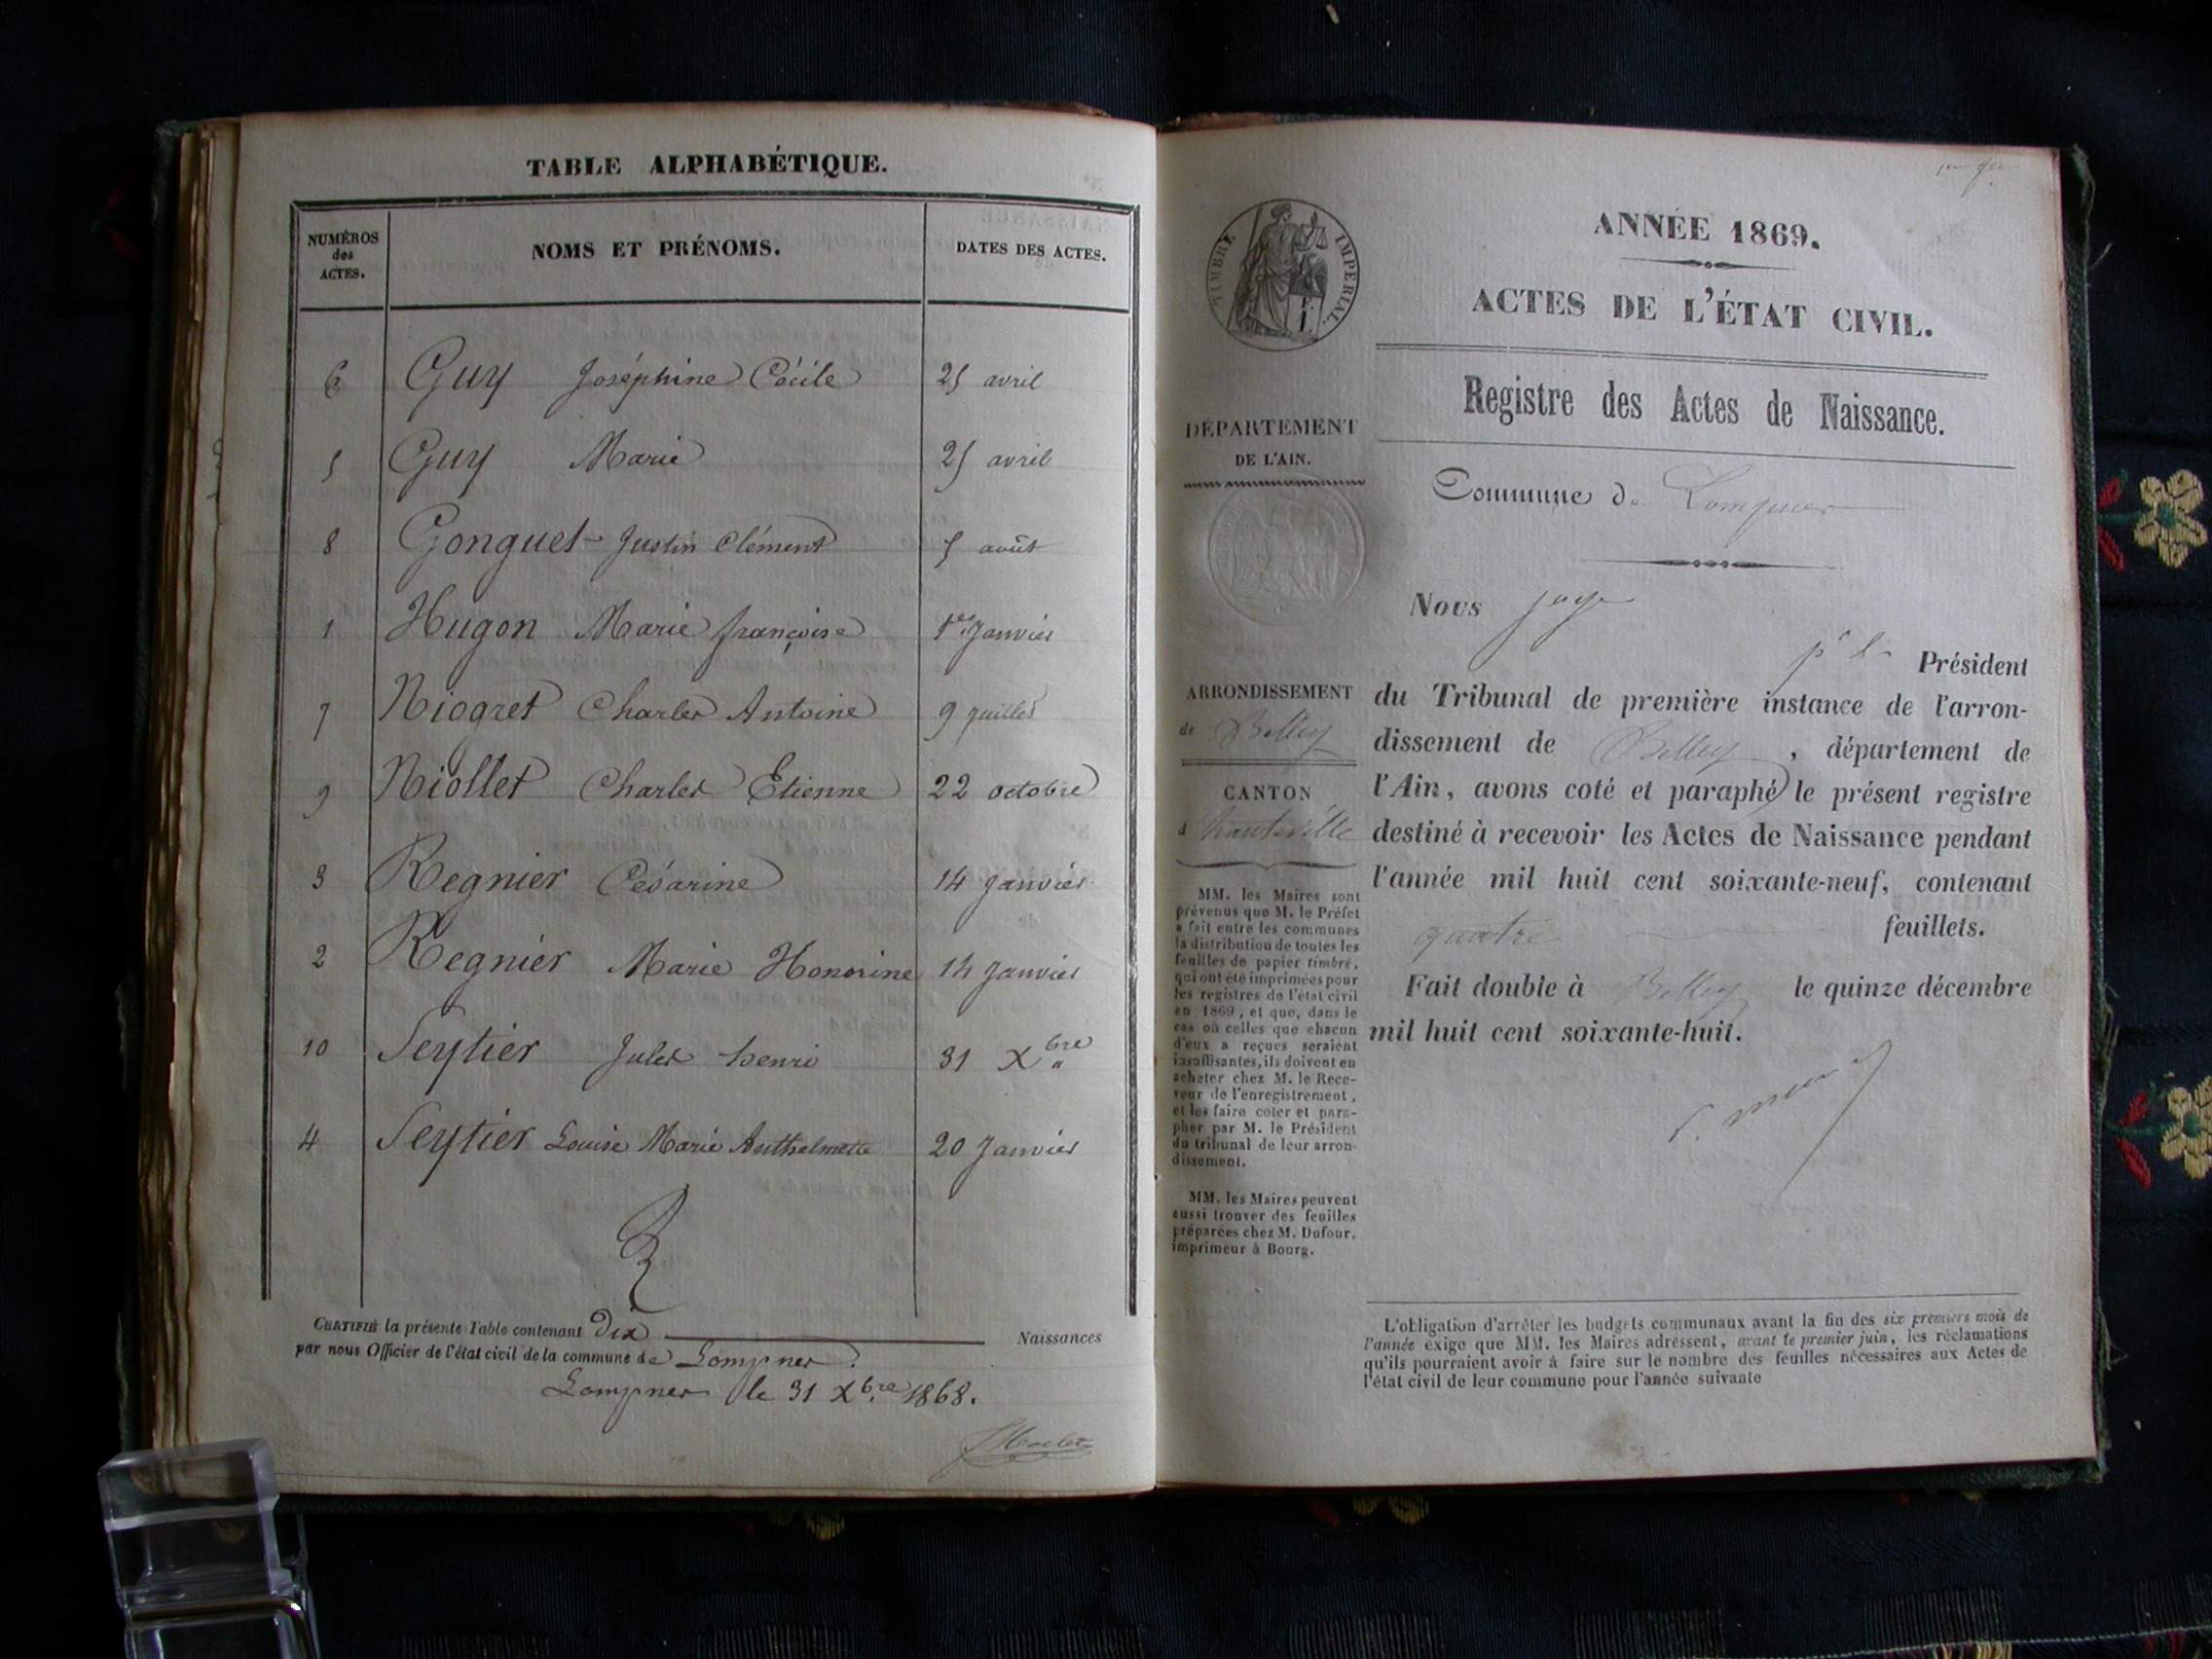 TABLE ALPHABÉTIQUE.
NUMÉROS des ACTES. NOMS ET PRÉNOMS. DATES DES ACTES.
6 Guy Joséphine Cécile 25 avril
5 Guy Marie 25 avril
8 Gonguet Justin Clément 5 août
1 Hugon Marie françoise 1er Janvier
7 Niogret Charles Antoine 9 juillet
9 Niollet Charles Etienne 22 octobre
3 Regnier Césarine 14 Janvier
2 Regnier Marie Honorine 14 Janvier
10 Seytier Jules henri 31 Xbre
4 Seytier Louise Marie Anthelmette 20 Janvier
CERTIFIÉ la présente Table contenant Dix Naissances
par nous Officier de l'état civil de la commune de Lompner.
Lompner le 31 Xbre 1868.
TIMBRE IMPERIAL.
ANNÉE 1869.
ACTES DE L'ÉTAT CIVIL.
Registre des Actes de Naissance.
DÉPARTEMENT
DE L'AIN.
ARRONDISSEMENT
de Belley
CANTON
d hauteville
MM. les Maires sont
prévenus que M. le Préfet
a fait entre les communes
la distribution de toutes les
feuilles de papier timbré,
qui ont été imprimées pour
les registres de l'état civil
en 1869, et que, dans le
cas où celles que chacun
d'eux a reçues seraient
insuffisantes, ils doivent en
acheter chez M. le Rece-
veur de l'enregistrement,
et les faire coter et para-
pher par M. le Président
du tribunal de leur arron-
dissement.
MM. les Maires peuvent
aussi trouver des feuilles
préparées chez M. Dufour,
imprimeur à Bourg.
Commune de Lompner
Nous juge
pr le Président
du Tribunal de première instance de l'arron-
dissement de Belley, département de
l'Ain, avons coté et paraphé le présent registre
destiné à recevoir les Actes de Naissance pendant
l'année mil huit cent soixante-neuf, contenant
quatre feuillets.
Fait double à Belley le quinze décembre
mil huit cent soixante-huit.
L'obligation d'arrêter les budgets communaux avant la fin des six premiers mois de
l'année exige que MM. les Maires adressent, avant le premier juin, les réclamations
qu'ils pourraient avoir à faire sur le nombre des feuilles nécessaires aux Actes de
l'état civil de leur commune pour l'année suivante